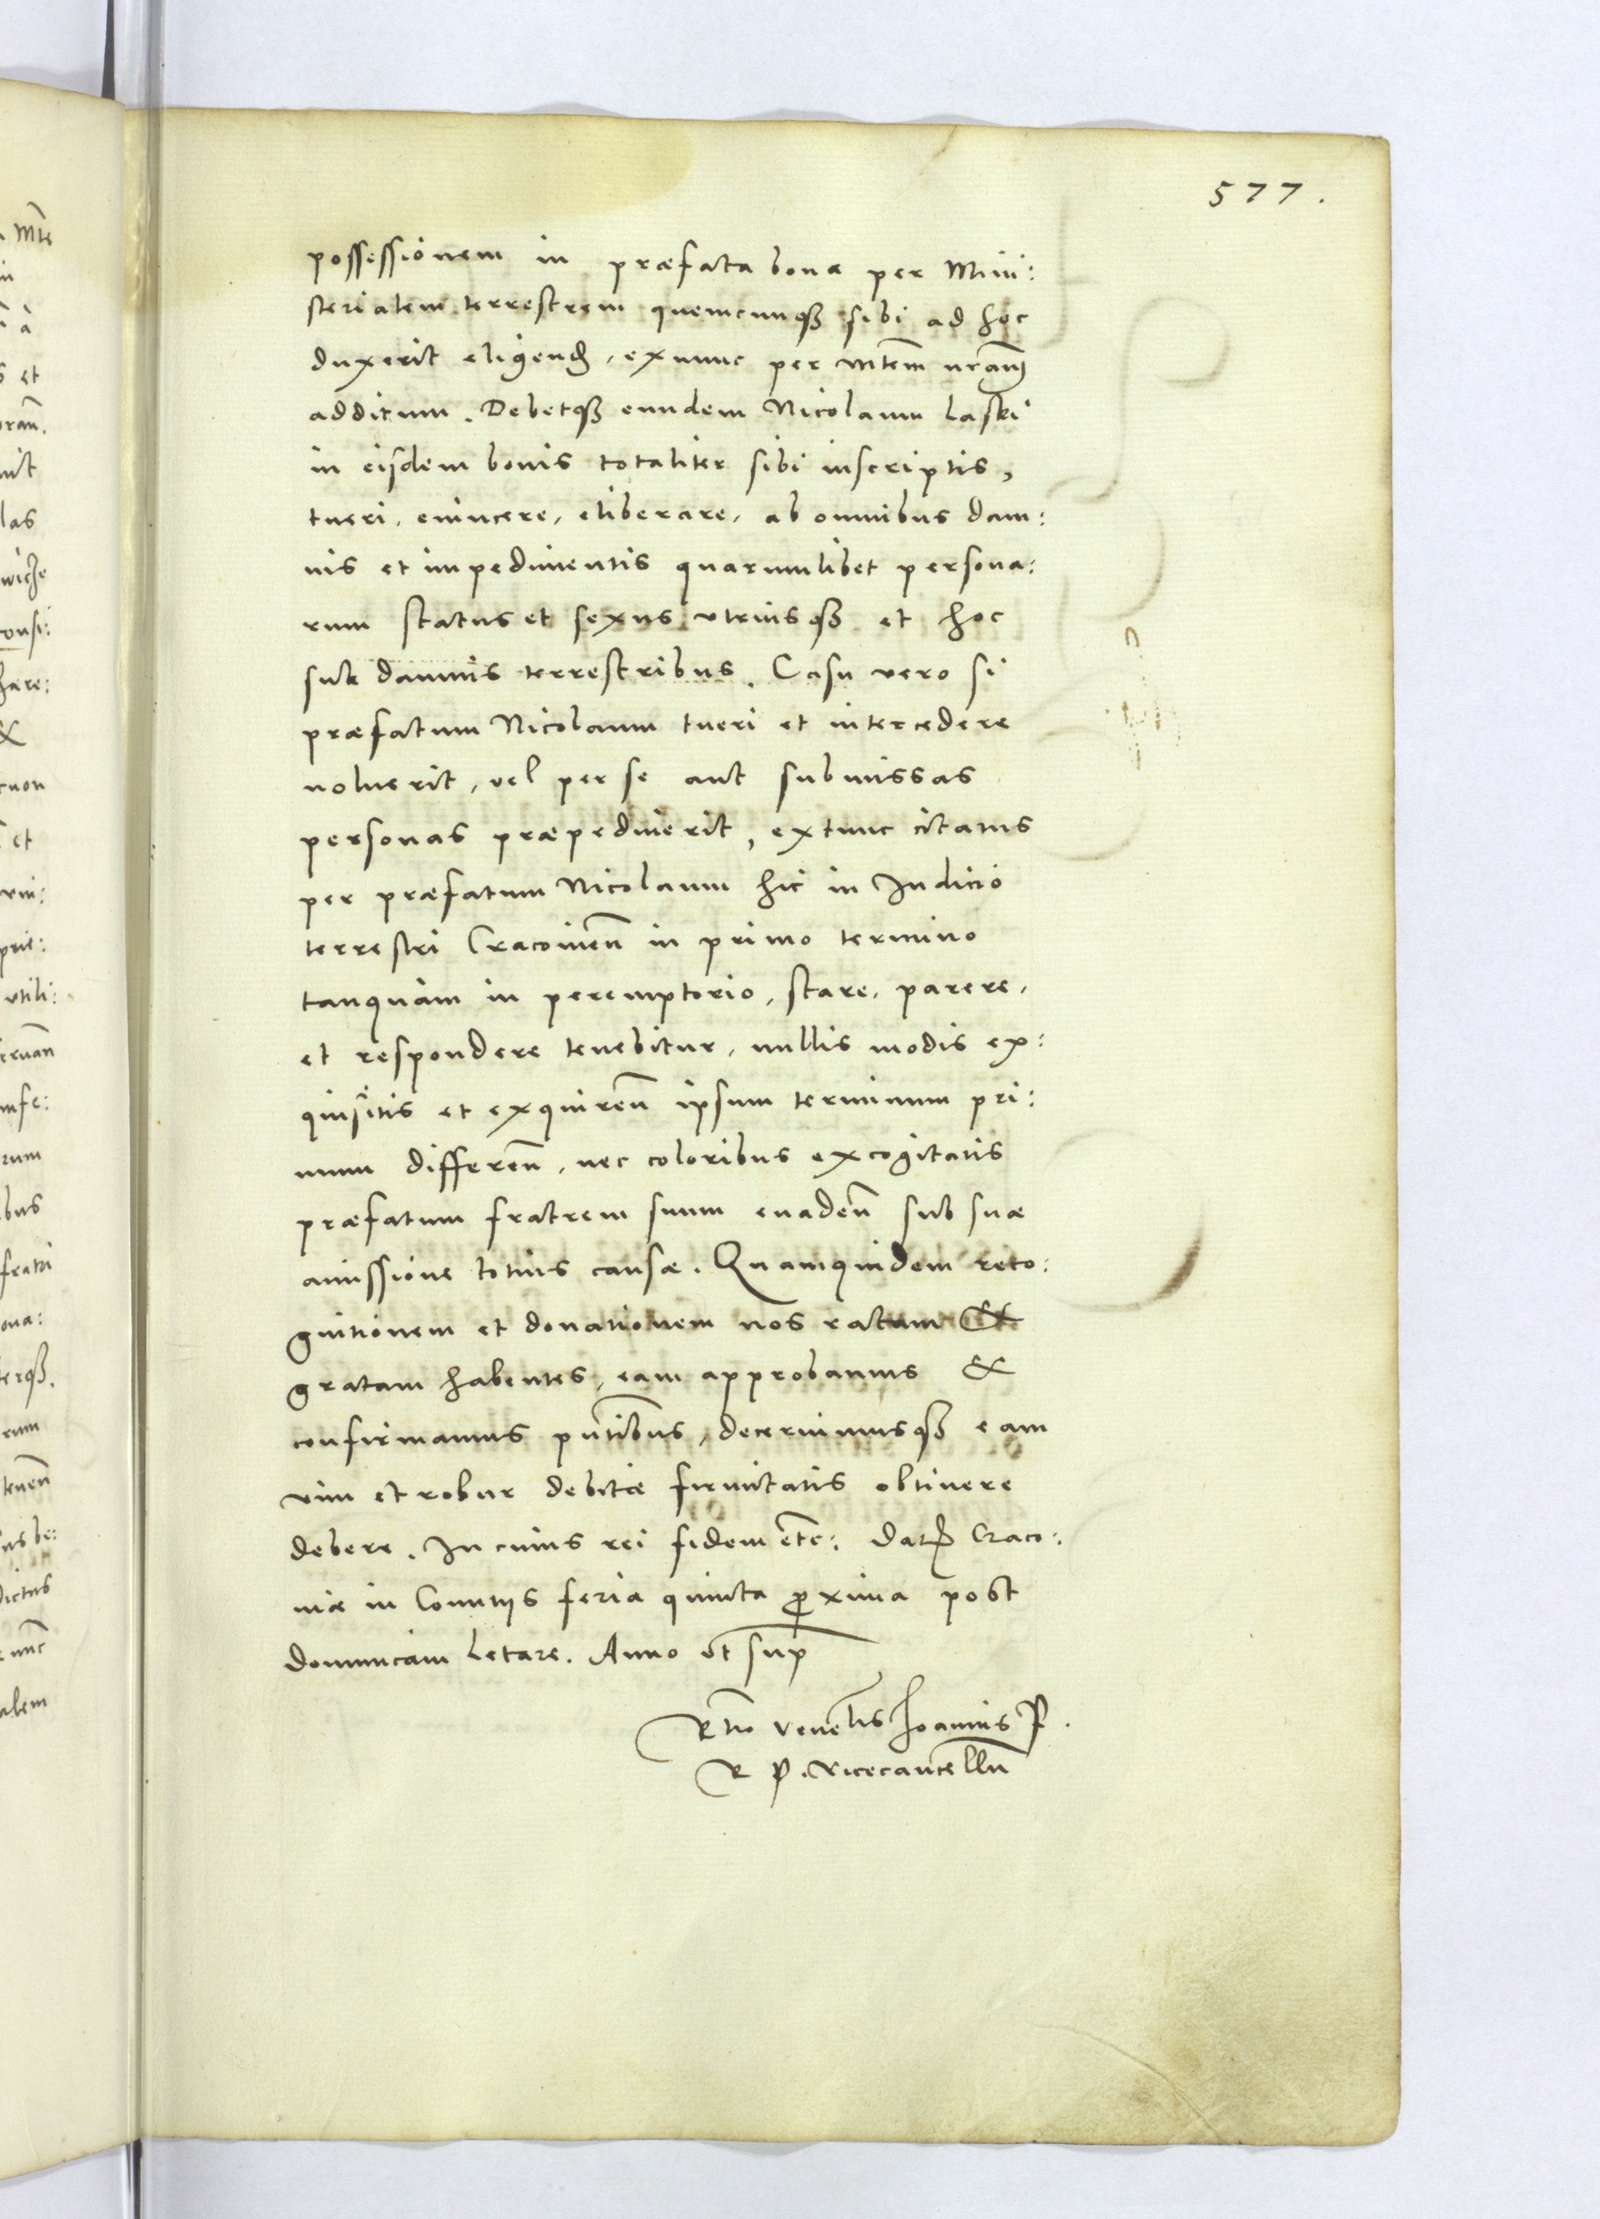 577.
possessionem in præfata bona per Mini:
sterialem terrestrem quemcunqȝ sibi ad hoc
duxerit eligend, ex nunc per Mtem nram
additum. Debetqȝ eundem Nicolaum Laski
in eisdem bonis totaliter sibi inscriptis,
tueri, evincere, eliberare, ab omnibus dam:
nis et impedimentis quarumlibet persona:
rum status et sexus utriusqȝ et hoc
sub damnis terrestribus. Casu vero si
præfatum Nicolaum tueri et intercedere
noluerit, vel per se aut submissas
personas præpediverit, extunc citatus
per præfatum Nicolaum hic in Iudicio
terrestri Cracovien in primo termino
tanquam in peremptorio, stare, parere,
et respondere tenebitur, nullis modis ex:
quisitis et exquiren ipsum terminum pri:
mum differen, nec coloribus excogitatis
præfatum fratrem suum evaden sub suæ
amissione totius causæ. Quamquidem reco:
gnitionem et donationem nos ratam &
gratam habentes, eam approbamus &
confirmamus pntibus, decernimusqȝ eam
vim et robur debitæ firmitatis obtinere
debere. In cuius rei fidem etc: Dat Craco:
viæ in Comitiis feria quinta proxima post
dominicam Letare. Anno ut sup
Rtio Venelis Joannis P.
R P. Vicecancellū